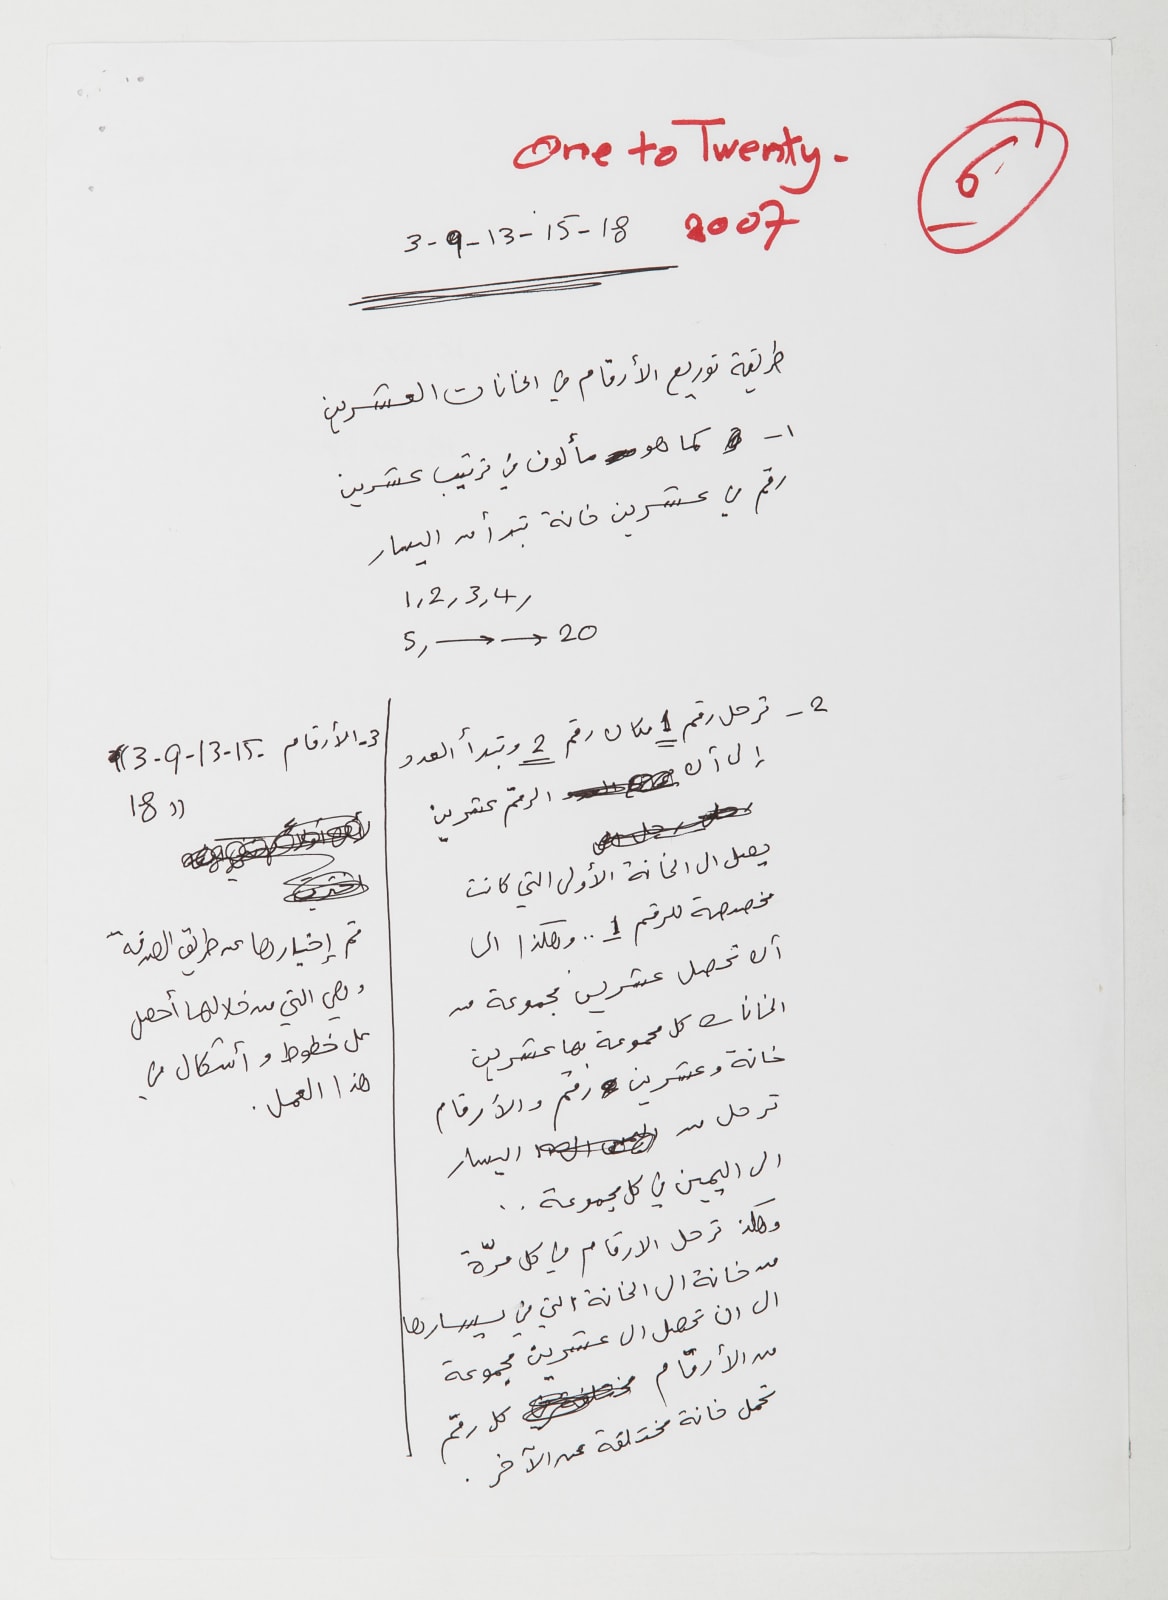 One to Twenty-
2007
6
3-9-13-15-18
طريقة توزيع الأرقام في الخانات العشرين
١- كما هو مألوف في ترتيب عشرين
رقم في عشرين خانة تبدأ من اليسار
1,2,3,4,
5, → → 20
2- ترحل رقم 1 مكان رقم 2 وتبدأ العد و
إلى أن الرقم عشرين
يصل الى الخانة الأولى التي كانت
مخصصة للرقم 1 .. وهكذا الى
أن تحصل عشرين مجموعة من
الخانات كل مجموعة بها عشرين
خانة وعشرين رقم والأرقام
ترحل من اليسار
الى اليمين في كل مجموعة ..
وهكذ ترحل الارقام في كل مرّة
من خانة الى الخانة التي في يسارها
الى ان تحصل الى عشرين مجموعة
من الأرقام كل رقم
تحمل خانة مختلفة عن الآخر .
3- الأرقام "3-9-13-15-
18"
تم إختيارها عن طريق الصدفة
وهي التي من خلالها أحصل
على خطوط وأشكال في
هذا العمل .